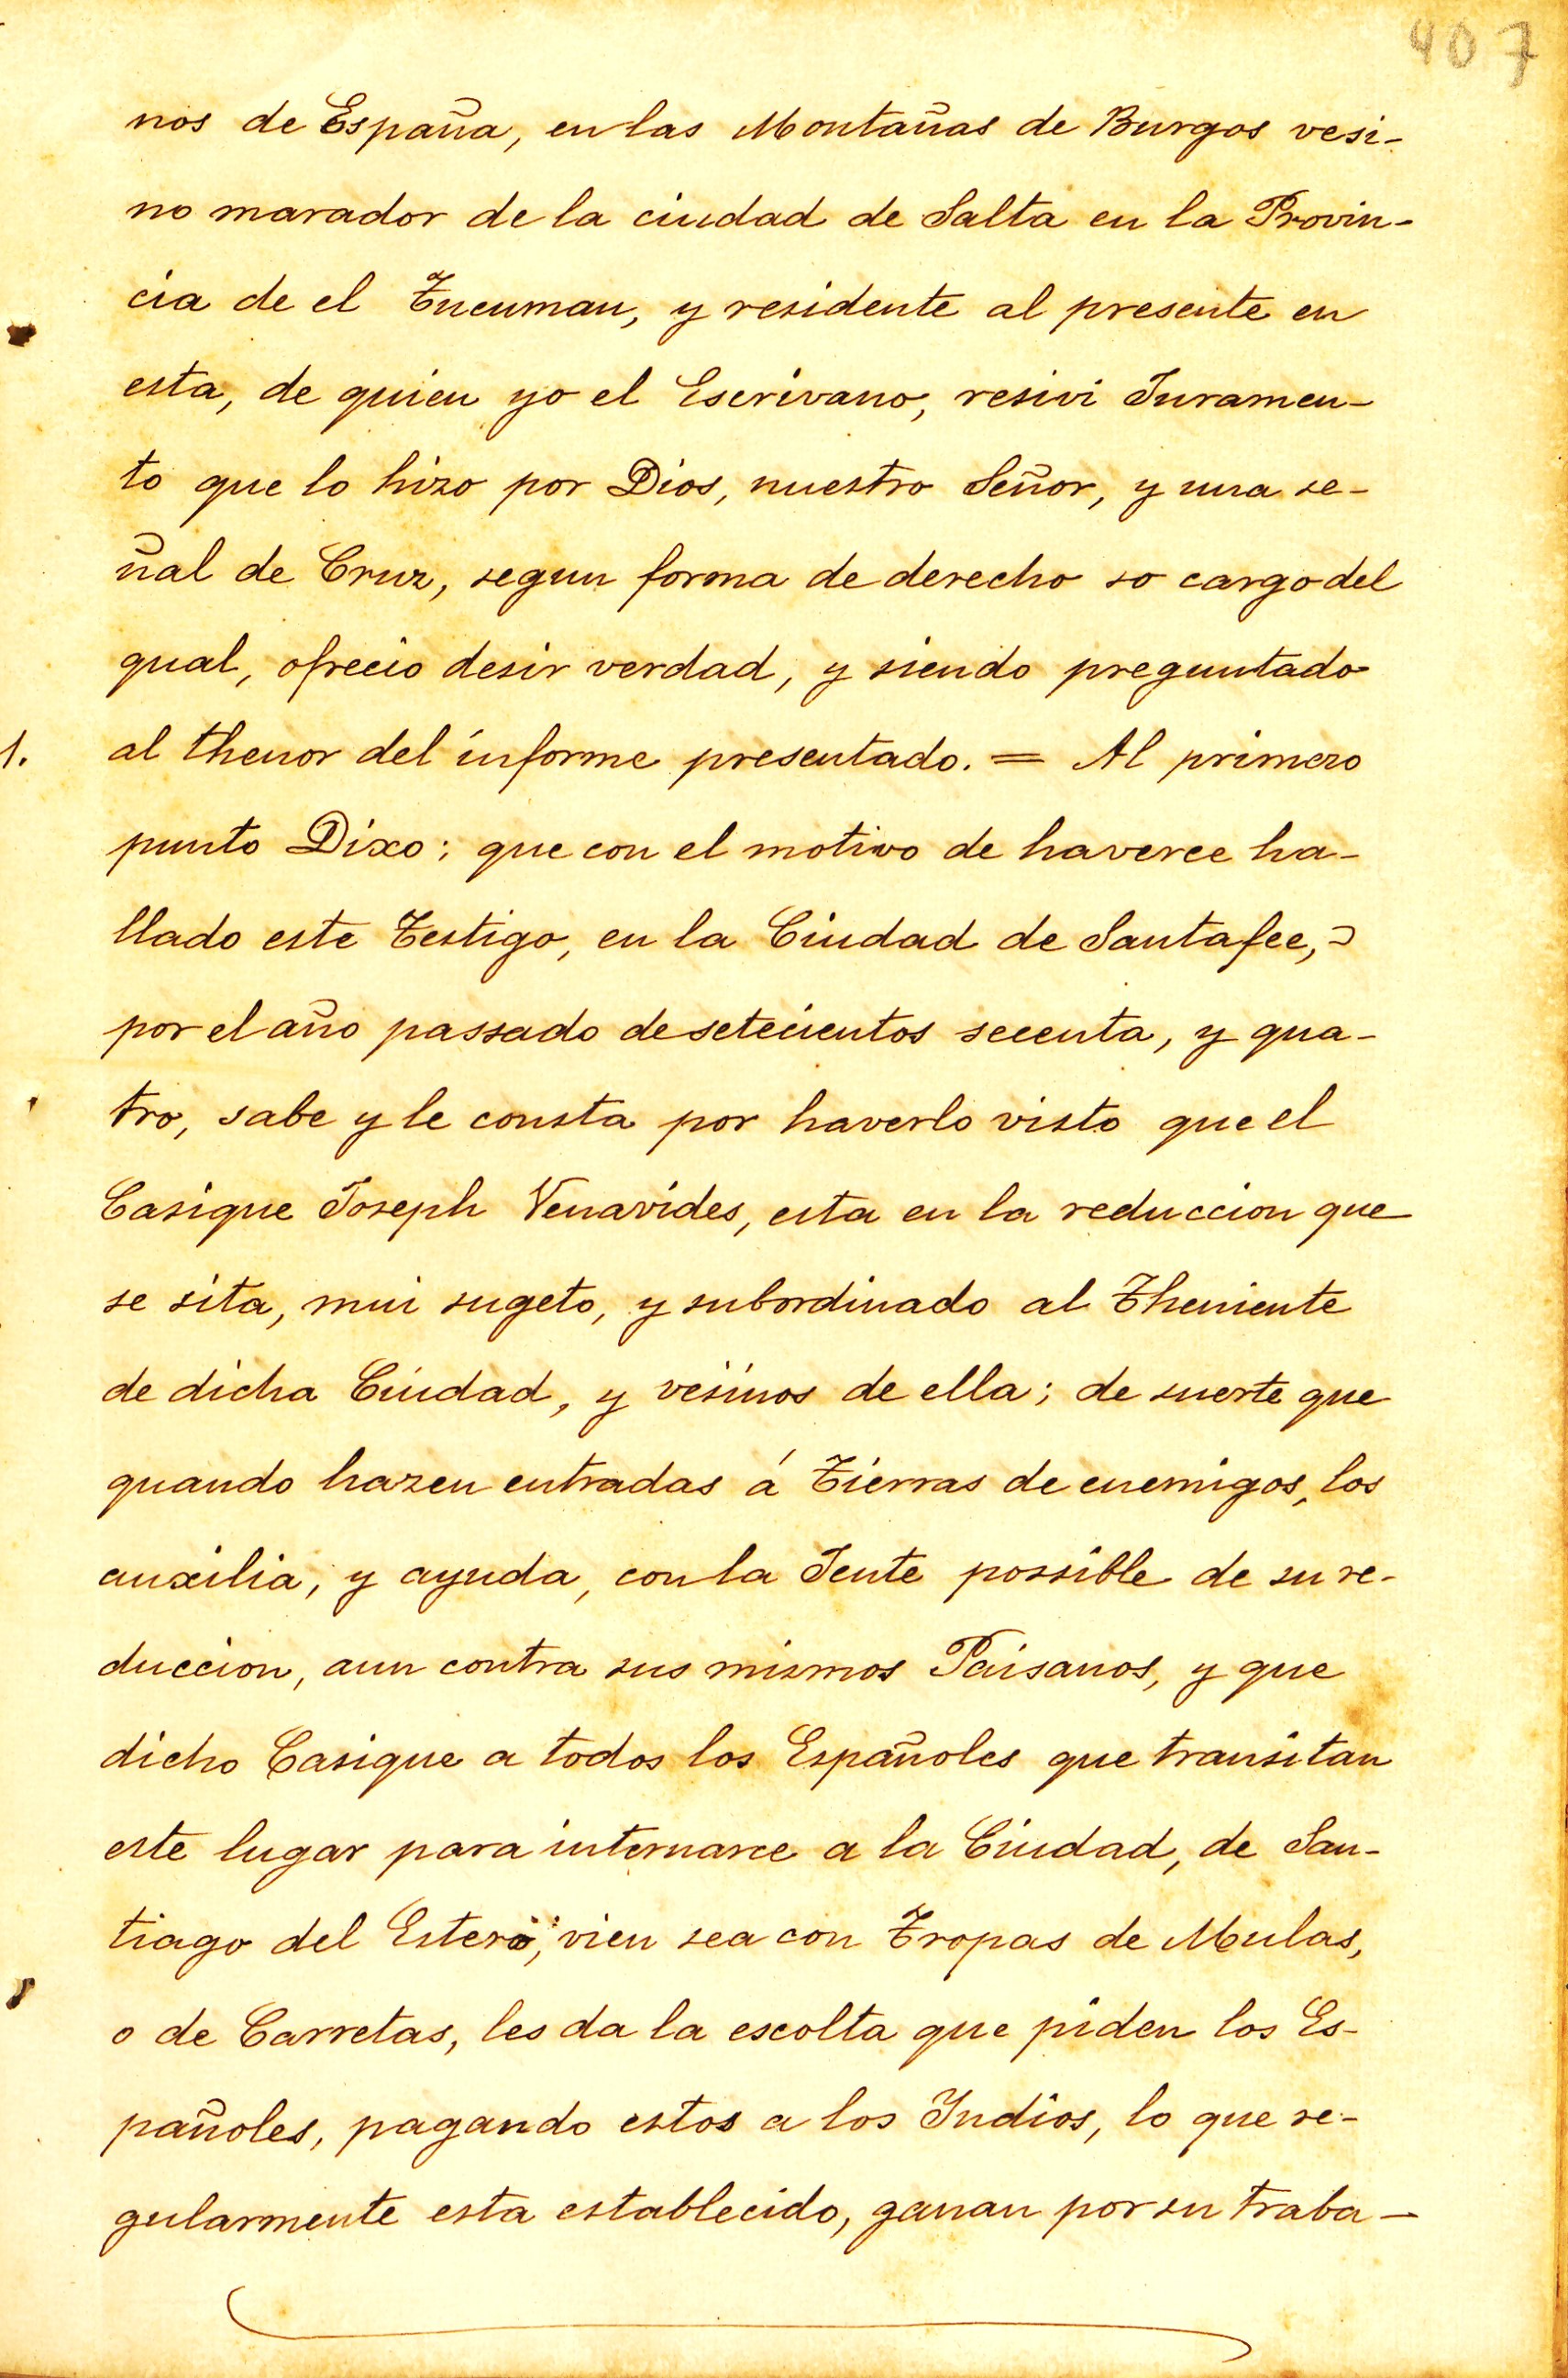 407
nos de España, en las Montañas de Burgos vesi-
no marador de la ciudad de Salta en la Provin-
cia de el Tucuman, y residente al presente en
esta, de quien yo el Escrivano, resivi Juramen-
to que lo hizo por Dios, nuestro Señor, y una se-
ñal de Cruz, segun forma de derecho so cargo del
qual, ofrecio desir verdad, y siendo preguntado
1. al thenor del informe presentado. = Al primero
punto Dixo: que con el motivo de haverce ha-
llado este Testigo, en la Ciudad de Santafee,
por el año passado de setecientos secenta, y qua-
tro, sabe y le consta por haverlo visto que el
Casique Joseph Venavides, esta en la reduccion que
se sita, mui sugeto, y subordinado al Theniente
de dicha Ciudad, y vesinos de ella; de suerte que
quando hazen entradas á Tierras de enemigos, los
auxilia, y ayuda, con la Jente possible de su re-
duccion, aun contra sus mismos Paisanos, y que
dicho Casique a todos los Españoles que transitan
este lugar para internarce a la Ciudad, de San-
tiago del Estero; vien sea con Tropas de Mulas,
o de Carretas, les da la escolta que piden los Es-
pañoles, pagando estos a los Indios, lo que re-
gularmente esta establecido, ganan por su traba-